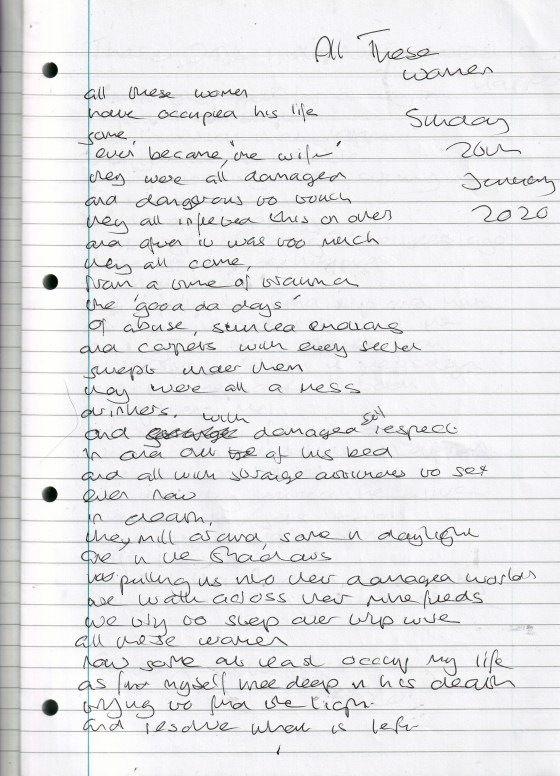 All These
women
Sunday
26th
January
2020
all these women
have occupied his life
some
even became 'the wife'
they were all damaged
and dangerous to touch
they all inflicted this on others
and often it was too much
they all came,
from a time of trauma
the 'good old days'
of abuse, stunted emotions
and carpets with every secret
swept under them
they were all a mess
drinkers, with
and damaged self respect
in and out of his bed
and all with strange attitudes to sex
even now
in death,
they mill around, some in daylight
one in the shadows
pulling us into their damaged worlds
we walk across their minefields
we try to step over trip wire
all these women
now some at least occupy my life
as I find myself knee deep in his death
trying to find the light
and resolve what is left